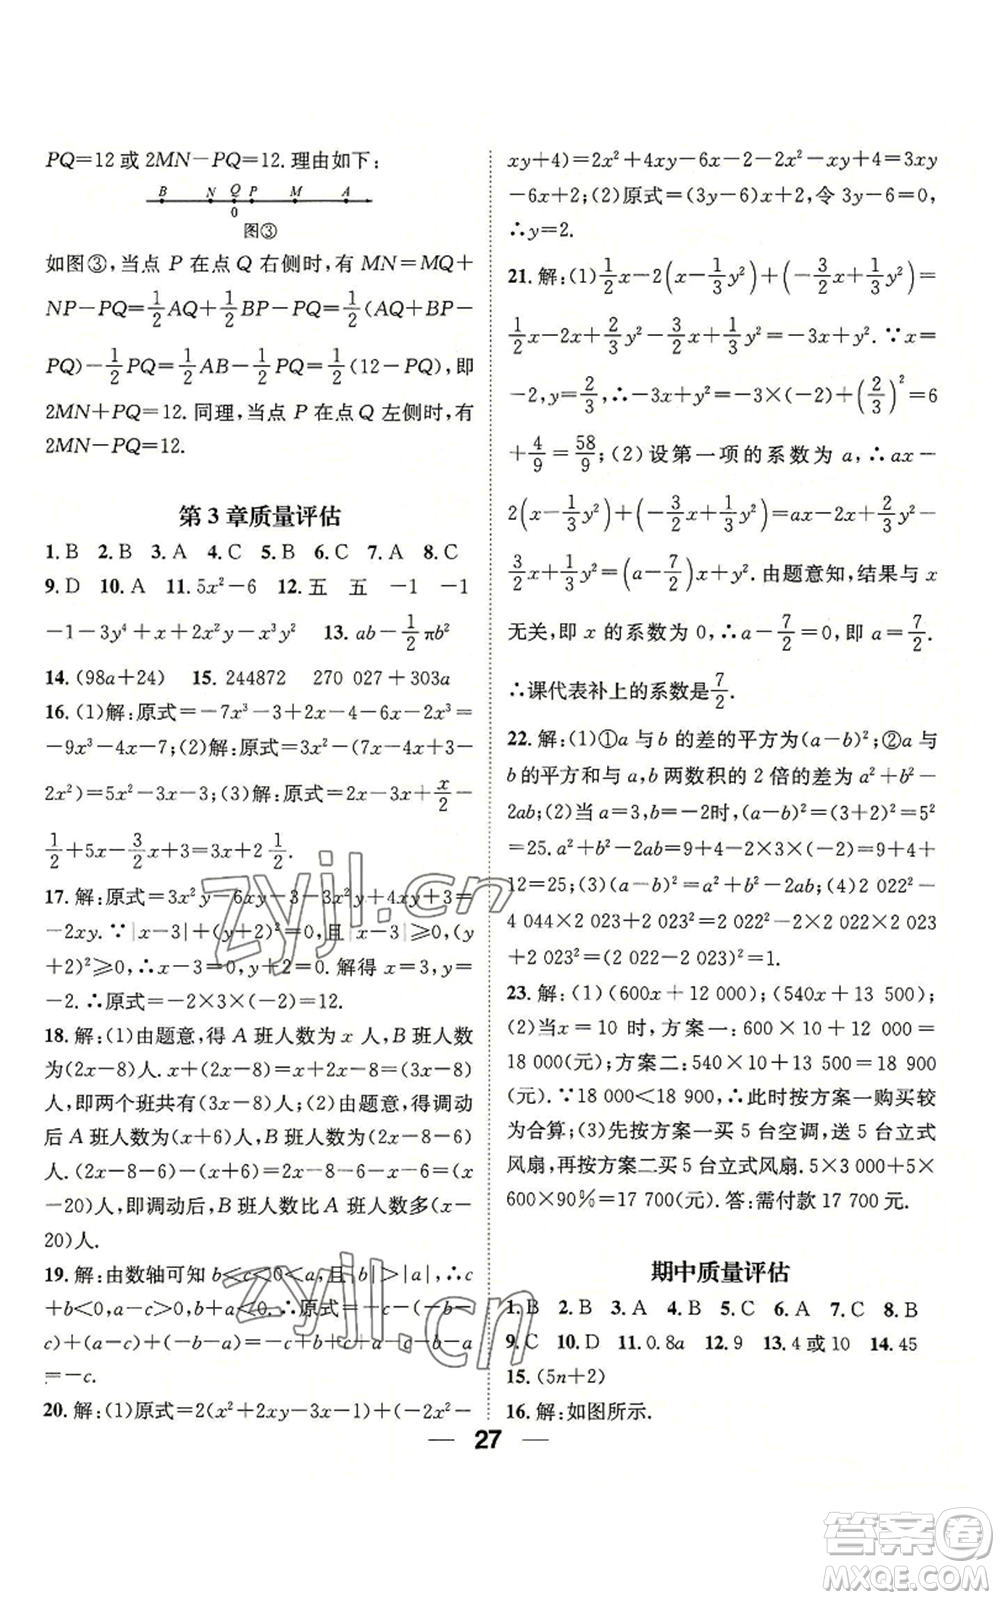 PQ=12 或 2MN-PQ=12. 理由如下:
B N Q P M A
0
图③
如图③,当点 P 在点 Q 右侧时,有 MN=MQ+
NP-PQ=1/2AQ+1/2BP-PQ=1/2(AQ+BP-
PQ)-1/2PQ=1/2AB-1/2PQ=1/2(12-PQ),即
2MN+PQ=12. 同理,当点 P 在点 Q 左侧时,有
2MN-PQ=12.
第 3 章质量评估
1. B 2. B 3. A 4. C 5. B 6. C 7. A 8. C
9. D 10. A 11. 5x²-6 12. 五 五 -1 -1
-1-3y⁴+x+2x²y-x³y² 13. ab-1/2πb²
14. (98a+24) 15. 244872 270 027+303a
16. (1)解:原式=-7x³-3+2x-4-6x-2x³=
-9x³-4x-7;(2)解:原式=3x²-(2x²-x+3x-
2x²)=3x²-2x;(3)解:原式=2x-3x+x/2-
1/2+5x-3/2x+3=3x+2 1/2.
17. 解:原式=3x²y-6xy-3-3x²y+4xy+3=
-2xy. ∵|x-3|+(y+2)²=0,且|x-3|≥0,(y
+2)²≥0,∴x-3=0,y+2=0. 解得 x=3,y=
-2. ∴原式=-2×3×(-2)=12.
18. 解:(1)由题意,得 A 班人数为 x 人,B 班人数
为(2x-8)人. x+(2x-8)=x+2x-8=(3x-8)
人,即两个班共有(3x-8)人;(2)由题意,得调动
后 A 班人数为(x+6)人,B 班人数为(2x-8-6)
人. (2x-8-6)-(x+6)=2x-8-6-x-6=(x
-20)人,即调动后,B 班人数比 A 班人数多(x-
20)人.
19. 解:由数轴可知 b<c<0<a,且|b|>|a|,∴c
+b<0,a-c>0,b+a<0. ∴原式=-(c+b)-(a-
c)+(a+b)+(-b-a)=-c-b+c-a+a+b-b-
a=-c.
20. 解:(1)原式=2(x²+2xy-3x-1)+(-2x²-
xy+4)=2x²+4xy-6x-2-2x²-xy+4=3xy
-6x+2;(2)原式=(3y-6)x+2,令 3y-6=0,
∴y=2.
21. 解:(1)1/2x-2(x-1/3y²)+(-3/2x+1/3y²)=
1/2x-2x+2/3y²-3/2x+1/3y²=-3x+y². ∵x=
-2,y=2/3,∴-3x+y²=-3×(-2)+(2/3)²=6
+4/9=58/9;(2)设第一项的系数为 a,∴ax-
2(x-1/3y²)+(-3/2x+1/3y²)=ax-2x+2/3y²-
3/2x+1/3y²=(a-7/2)x+y². 由题意知,结果与 x
无关,即 x 的系数为 0,∴a-7/2=0,即 a=7/2.
∴课代表补上的系数是7/2.
22. 解:(1)①a 与 b 的差的平方为(a-b)²;②a 与
b 的平方和与 a,b 两数积的 2 倍的差为 a²+b²-
2ab;(2)当 a=3,b=-2时,(a-b)²=(3+2)²=5²
=25. a²+b²-2ab=9+4-2×3×(-2)=9+4+
12=25;(3)(a-b)²=a²+b²-2ab;(4)2 022²-
4 044×2 023+2 023²=2 022²-2×2 022×2 023
+2 023²=(2 022-2 023)²=1.
23. 解:(1)(600x+12 000);(540x+13 500);
(2)当 x=10 时,方案一:600×10+12 000=
18 000(元);方案二:540×10+13 500=18 900
(元). ∵18 000<18 900,∴此时按方案一购买较
为合算;(3)先按方案一买 5 台空调,送 5 台立式
风扇,再按方案二买 5 台立式风扇. 5×3 000+5×
600×90%=17 700(元). 答:需付款 17 700 元.
期中质量评估
1. B 2. B 3. A 4. B 5. C 6. A 7. C 8. B
9. C 10. D 11. 0.8a 12. 9 13. 4 或 10 14. 45
15. (5n+2)
16. 解:如图所示.
27
zyjl.cn
zyjl.cn
答案圈
MXQE.COM